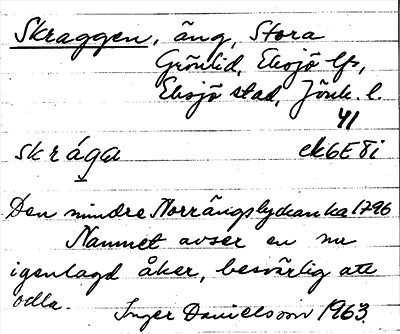 Skraggen, äng, Stora
Grönlid, Eksjö lfs,
Eksjö stad, Jönk. l.
41
skrága ek6E8i
Den mindre Norrängslyckan ka 1796
Namnet avser en nu
igenlagd åker, besvärlig att
odla.
Inger Danielsson 1963.